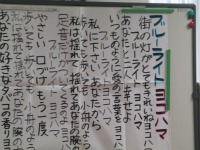 ブルーライトヨコハマ
街の灯りがとてもきれいねヨコハマ
ブルーライトヨコハマ
あなたとふたり幸せよ
いつものように愛の言葉をヨコハマ
ブルーライトヨコハマ
私にください あなたから
歩いても歩いても小舟のように
私はゆれて ゆれてあなたの腕の中
足音だけがついてくるのよヨコハマ
ブルーライトヨコハマ
やさしい口づけもう一度